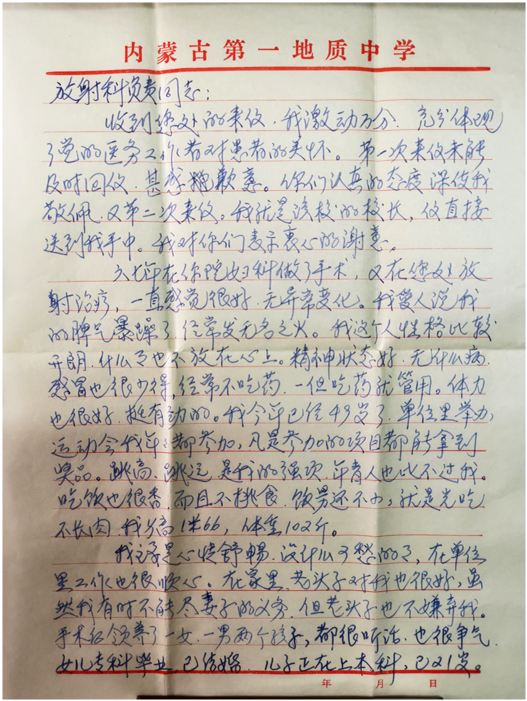 内蒙古第一地质中学
放射科负责同志：
收到您处的来信，我激动万分，充分体现
了党的医务工作者对患者的关怀。第一次来信未能
及时回信，甚感抱歉意。你们认真的态度深使我
敬佩，又第二次来信。我就是该校的校长，信直接
送到我手中。我对你们表示衷心的谢意。
六七年在你院妇科做了手术，又在您处放
射治疗，一直感觉很好，无异常变化。我爱人说我
的脾气暴躁了，经常发无名之火。我这个人性格比较
开朗，什么事也不放在心上。精神状态好，无什么病，
感冒也很少得，经常不吃药，一但吃药就管用。体力
也很好，挺有劲的。我今年已经49岁了，单位里举办
运动会我年年都参加，凡是参加的项目都能拿到
奖品。跳高、跳远是我的强项，年青人也比不过我。
吃饭也很香，而且不挑食，饭量还不小，就是光吃
不长肉，我身高1米66，体重102斤。
我主要是心情舒畅，没什么可愁的了，在单位
里工作也很顺心。在家里，老头子对我也很好，虽
然我有时不能尽妻子的义务，但老头子也不嫌弃我。
手术后领养了一女、一男两个孩子，都很听话，也很争气，
女儿专科毕业，已结婚，儿子正在上本科，已21岁。
年 月 日